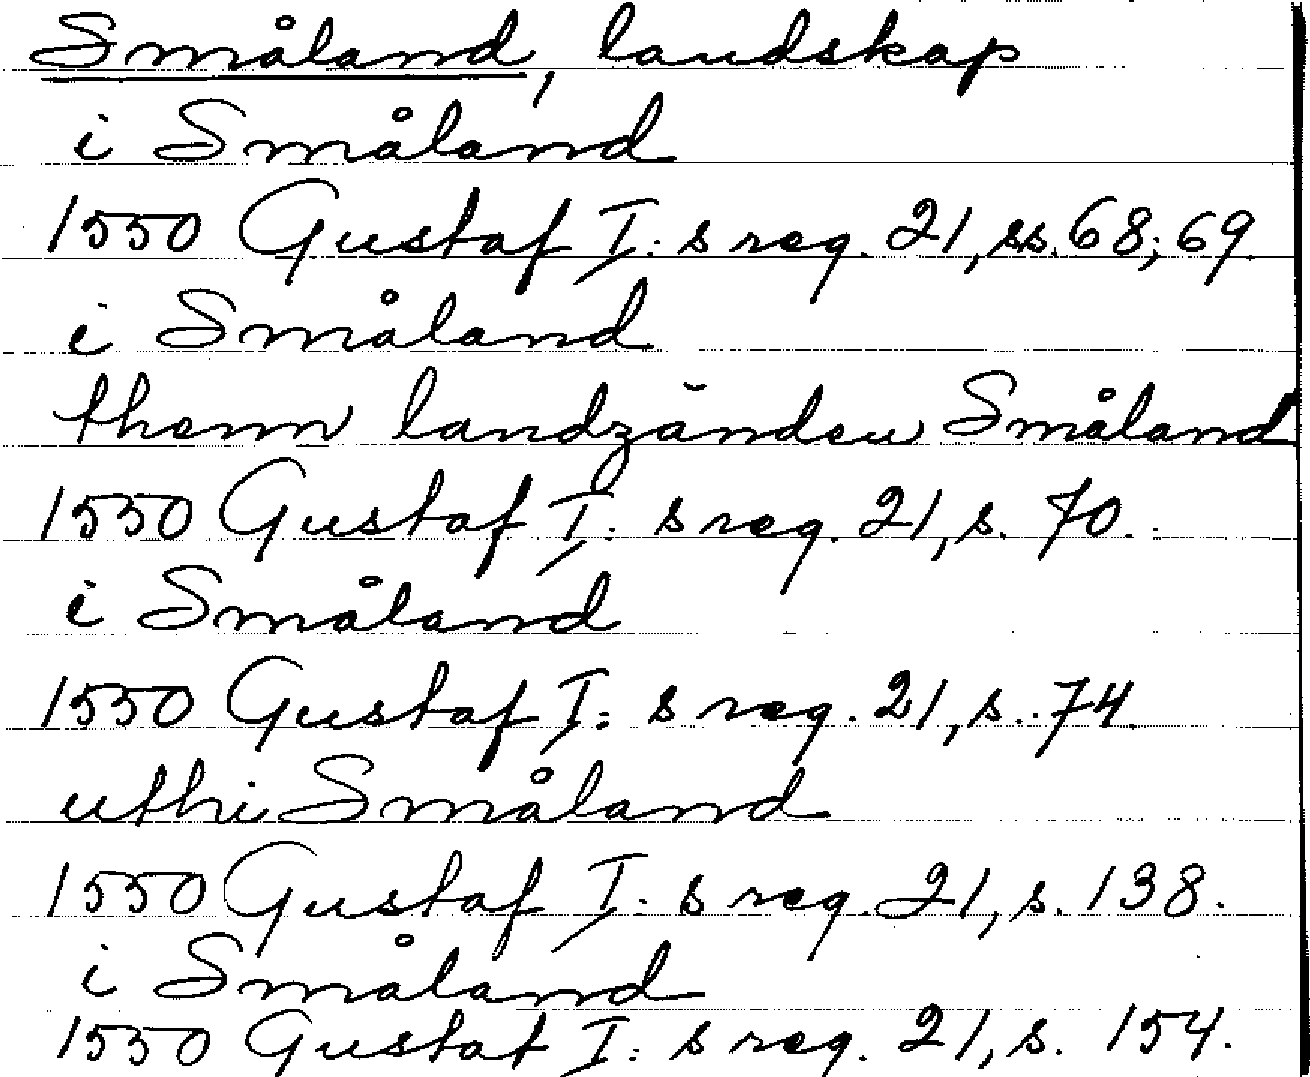 Småland, landskap
i Småland
1550 Gustaf I: s reg. 21, ss. 68; 69.
i Småland
thenn landzänden Småland
1550 Gustaf I: s reg. 21, s. 70.
i Småland
1550 Gustaf I: s reg. 21, s. 74.
uthi Småland
1550 Gustaf I: s reg. 21, s. 138.
i Småland
1550 Gustaf I: s reg. 21, s. 154.